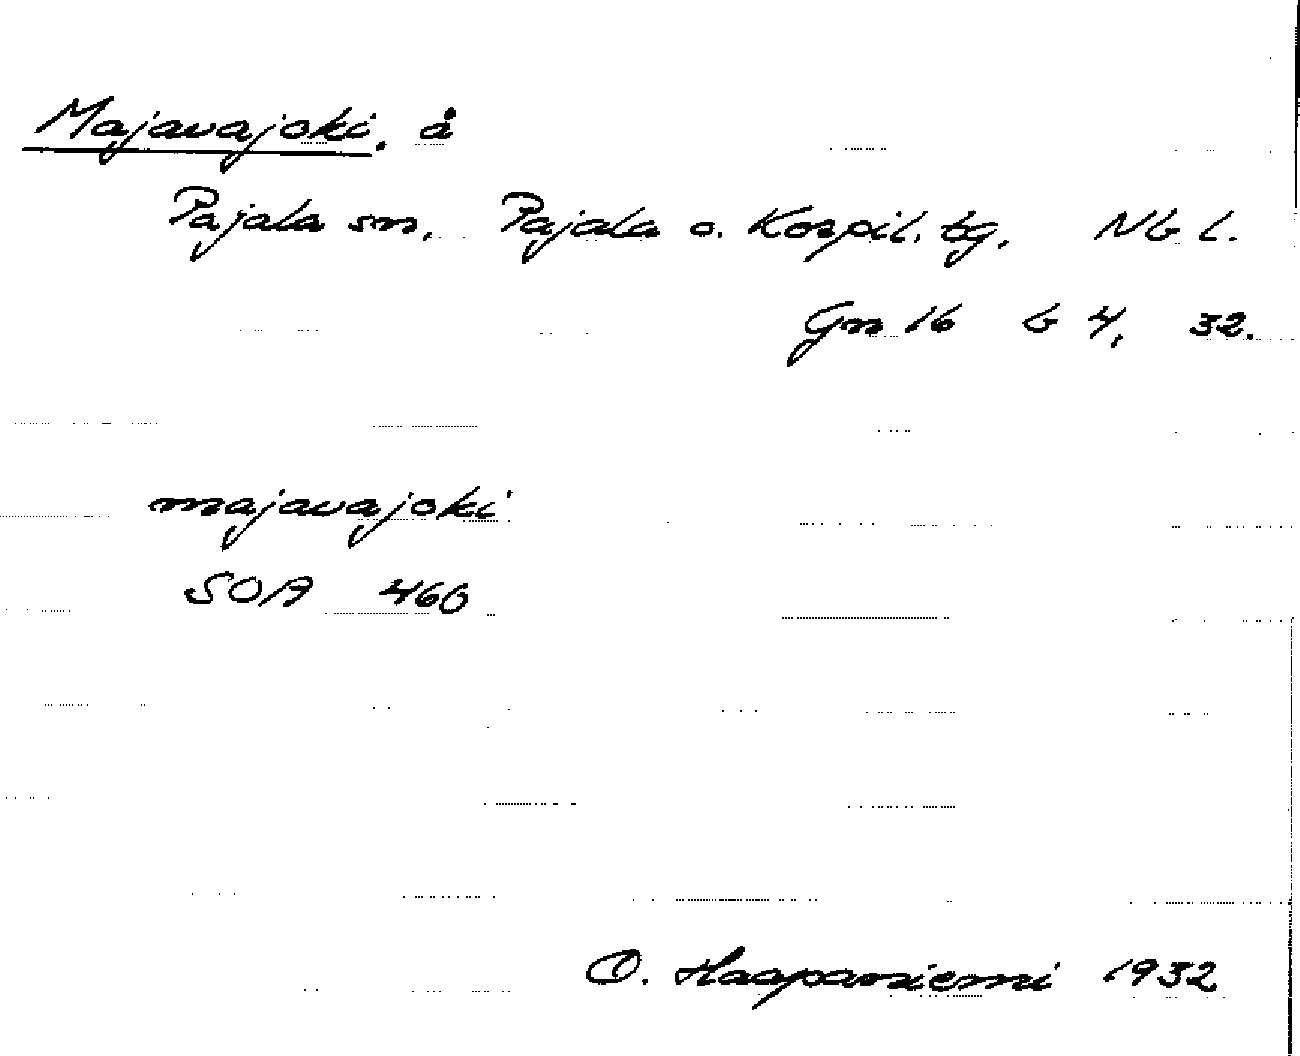 Majavajoki, å
Pajala sn, Pajala o. Korpil. tg. Nb l.
Gn 16 b 4, 32.
majavajoki
SOA 460
O. Haapaniemi 1932